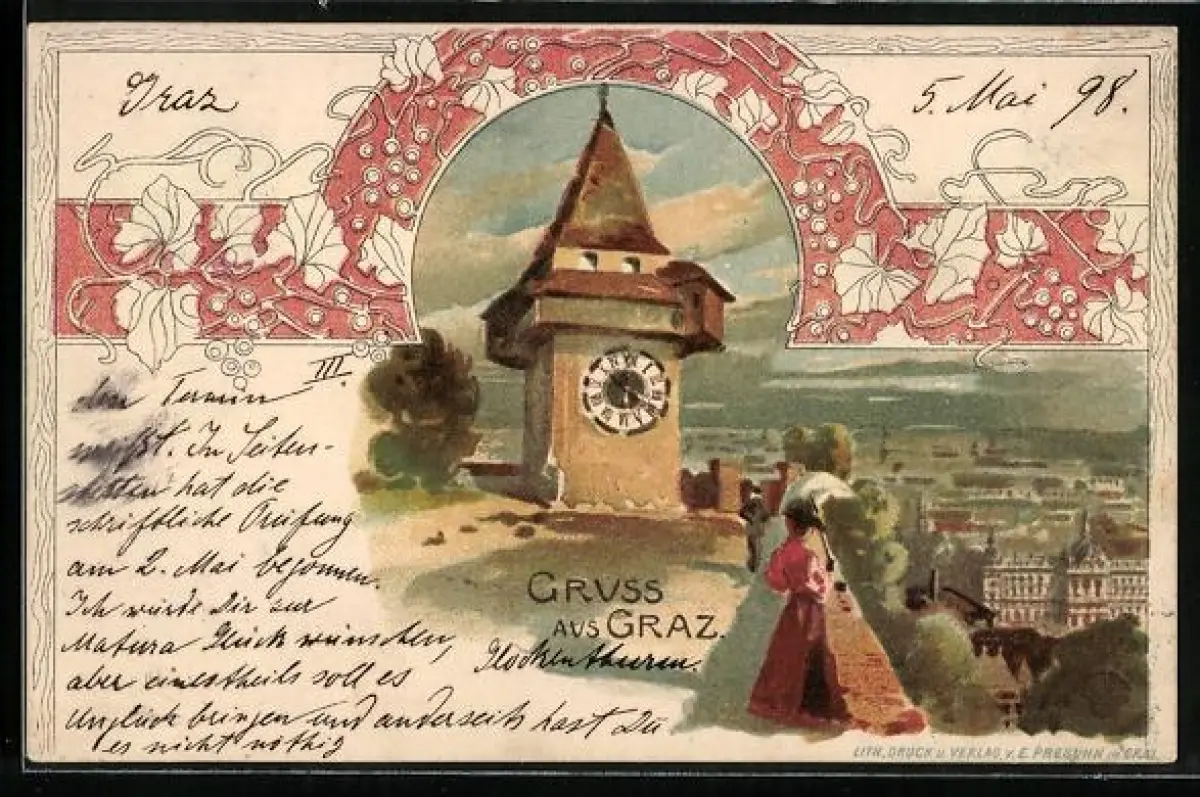 Graz
5. Mai 98.
III.
den Termin
weißt. In Seiten-
stetten hat die
schriftliche Prüfung
am 2. Mai begonnen.
Ich würde Dir zur
Matura Glück wünschen,
aber einestheils soll es
Unglück bringen und anderseits hast Du
es nicht nöthig
GRVSS
AVS GRAZ.
Glockenthurm.
LITH. DRUCK u. VERLAG v. E. PRESUHN in GRAZ